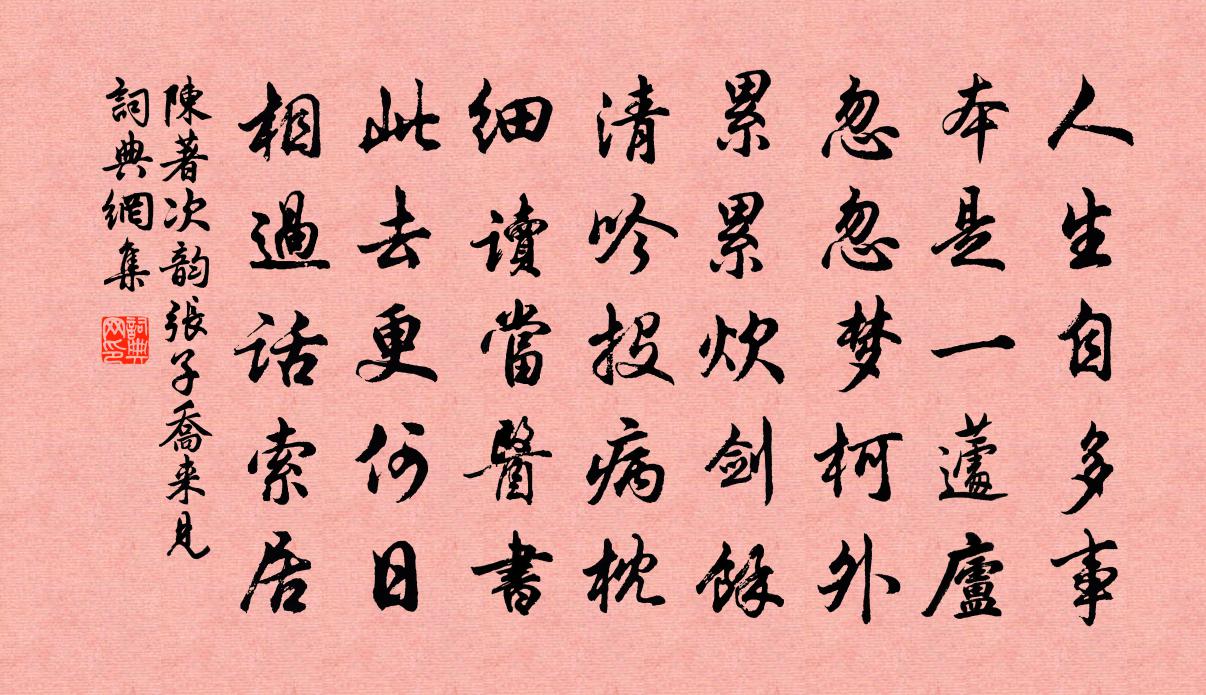 人生自多事
本是一蘧廬
忽忽梦柯外
累累炊剑餘
清吟投病枕
細讀當醫書
此去更何日
相過話索居
陳著次韵張子喬来見
詞典網集
詞典网印